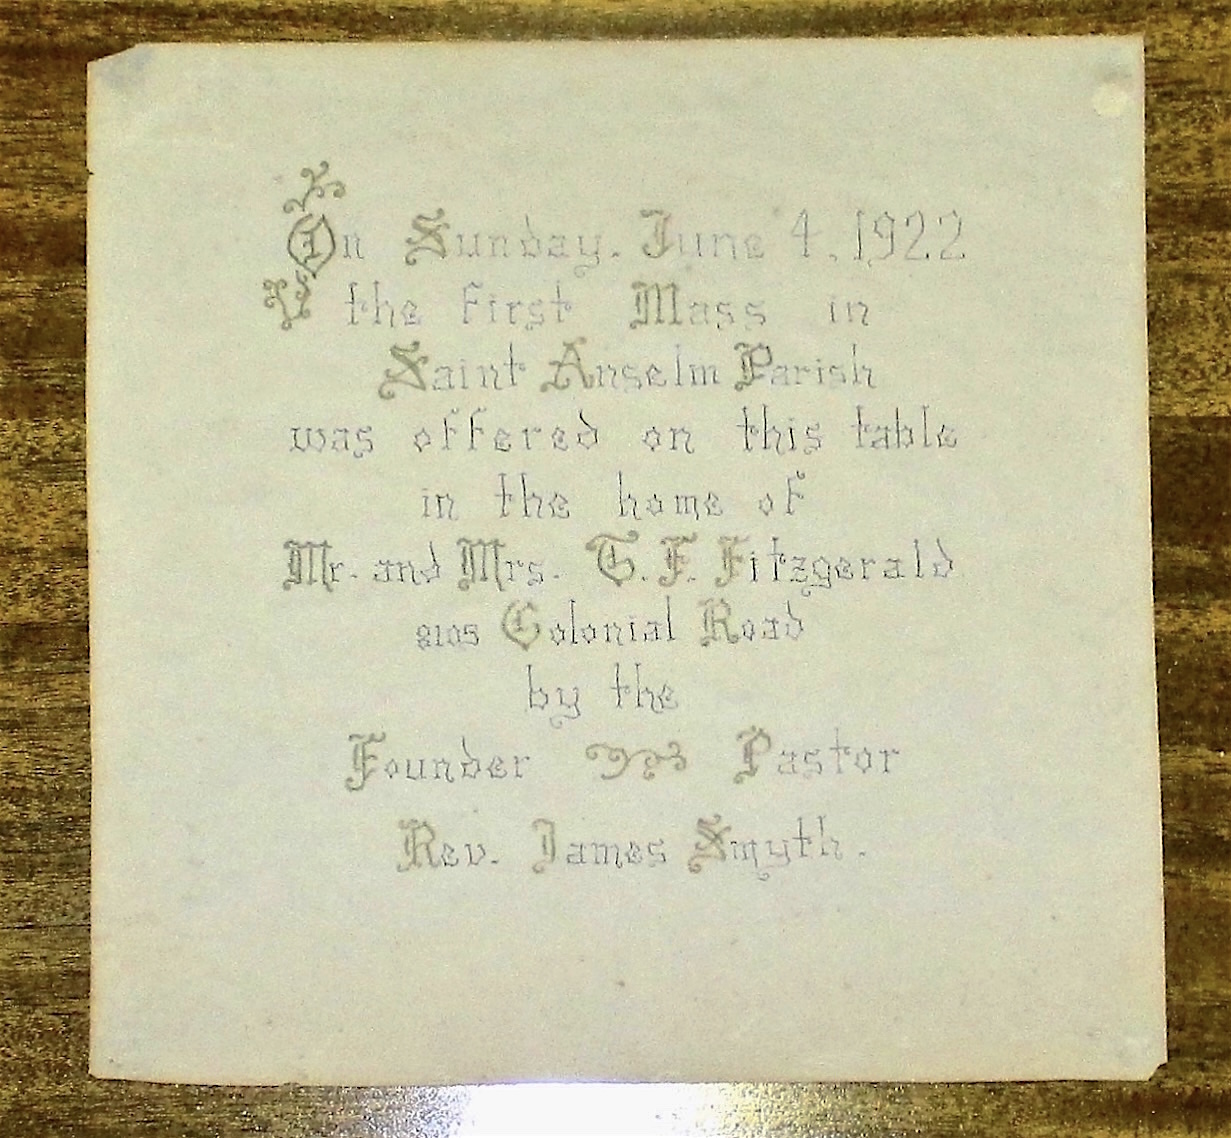 On Sunday. June 4, 1922
the first Mass in
Saint Anselm Parish
was offered on this table
in the home of
Mr. and Mrs. T. F. Fitzgerald
8105 Colonial Road
by the
Founder Pastor
Rev. James Smyth.